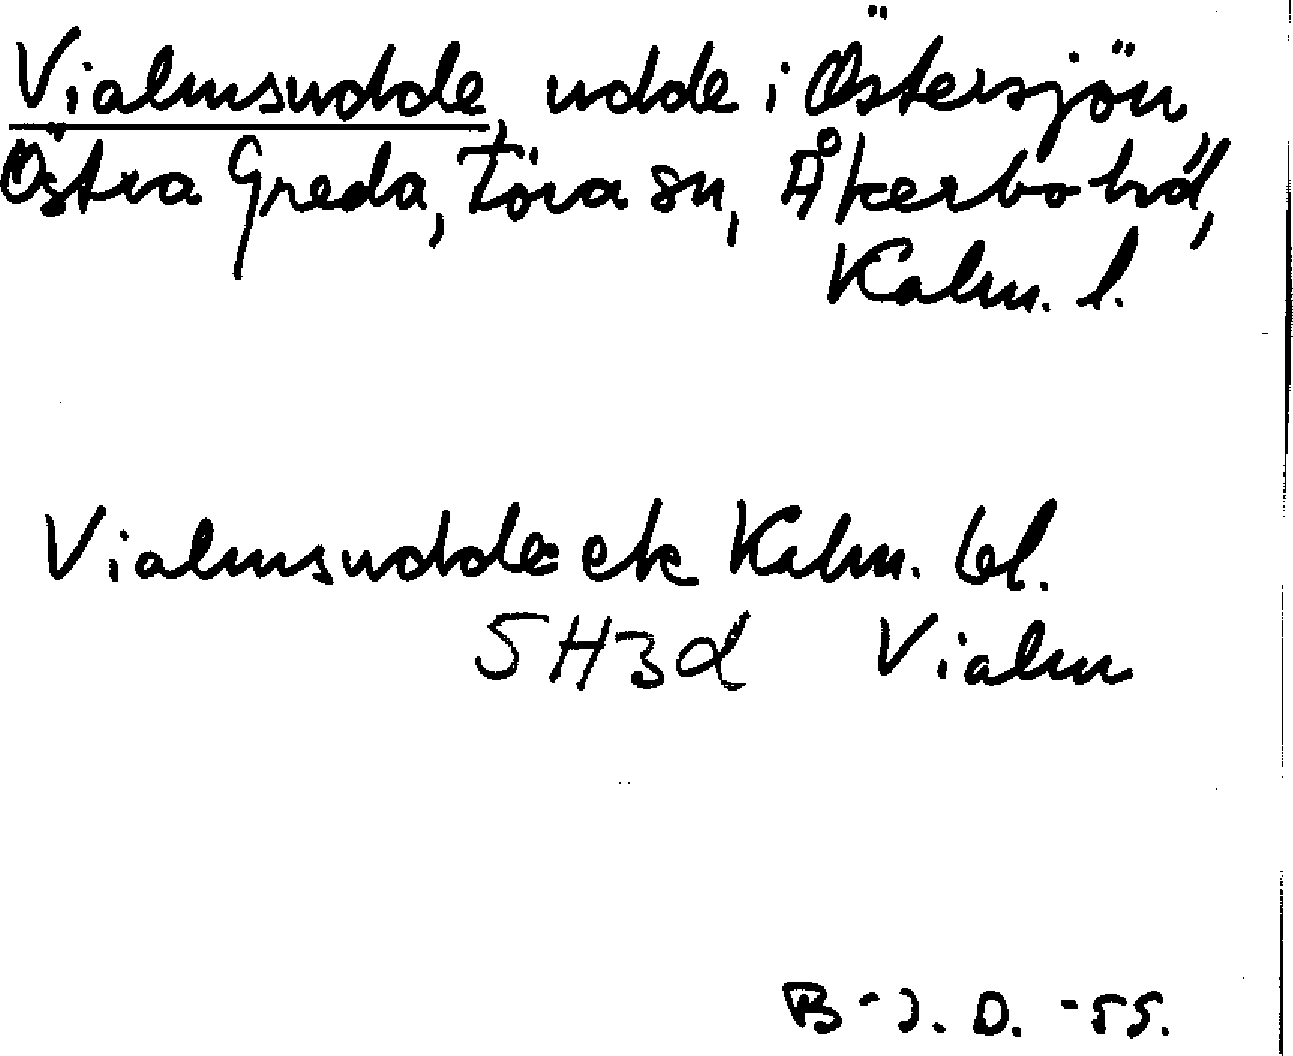 Vialmsudde, udde i Östersjön
Östra Greda, Föra sn, Åkerbo hd,
Kalm. l.
Vialmsudde ek Kalm. bl.
5H3d Vialm
B-J. D. -55.